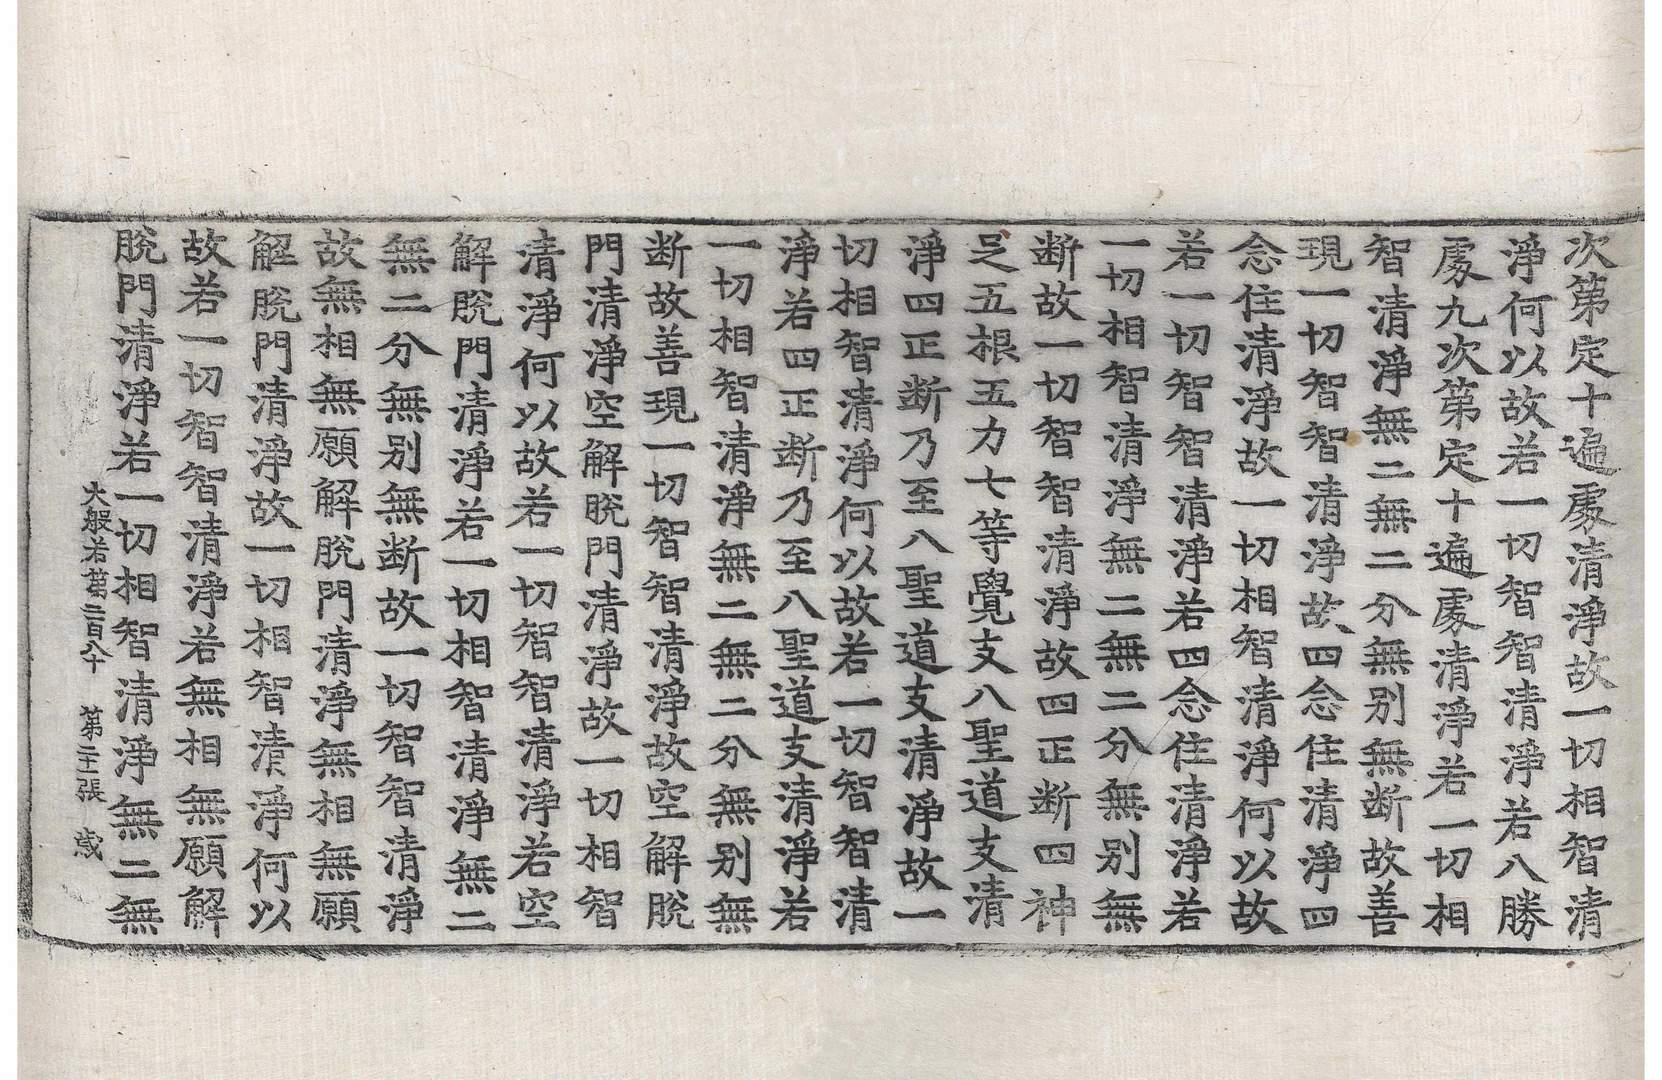 次第定十遍處清淨故一切相智清
淨何以故若一切智智清淨若八勝
處九次第定十遍處清淨若一切相
智清淨無二無二分無別無断故善
現一切智智清淨故四念住清淨四
念住清淨故一切相智清淨何以故
若一切智智清淨若四念住清淨若
一切相智清淨無二無二分無別無
断故一切智智清淨故四正断四神
足五根五力七等覺支八聖道支清
淨四正断乃至八聖道支清淨故一
切相智清淨何以故若一切智智清
淨若四正断乃至八聖道支清淨若
一切相智清淨無二無二分無別無
断故善現一切智智清淨故空解脫
門清淨空解脫門清淨故一切相智
清淨何以故若一切智智清淨若空
解脫門清淨若一切相智清淨無二
無二分無別無断故一切智智清淨
故無相無願解脫門清淨無相無願
解脫門清淨故一切相智清淨何以
故若一切智智清淨若無相無願解
脫門清淨若一切相智清淨無二無
大般若第二百八十 第二十一張 歲